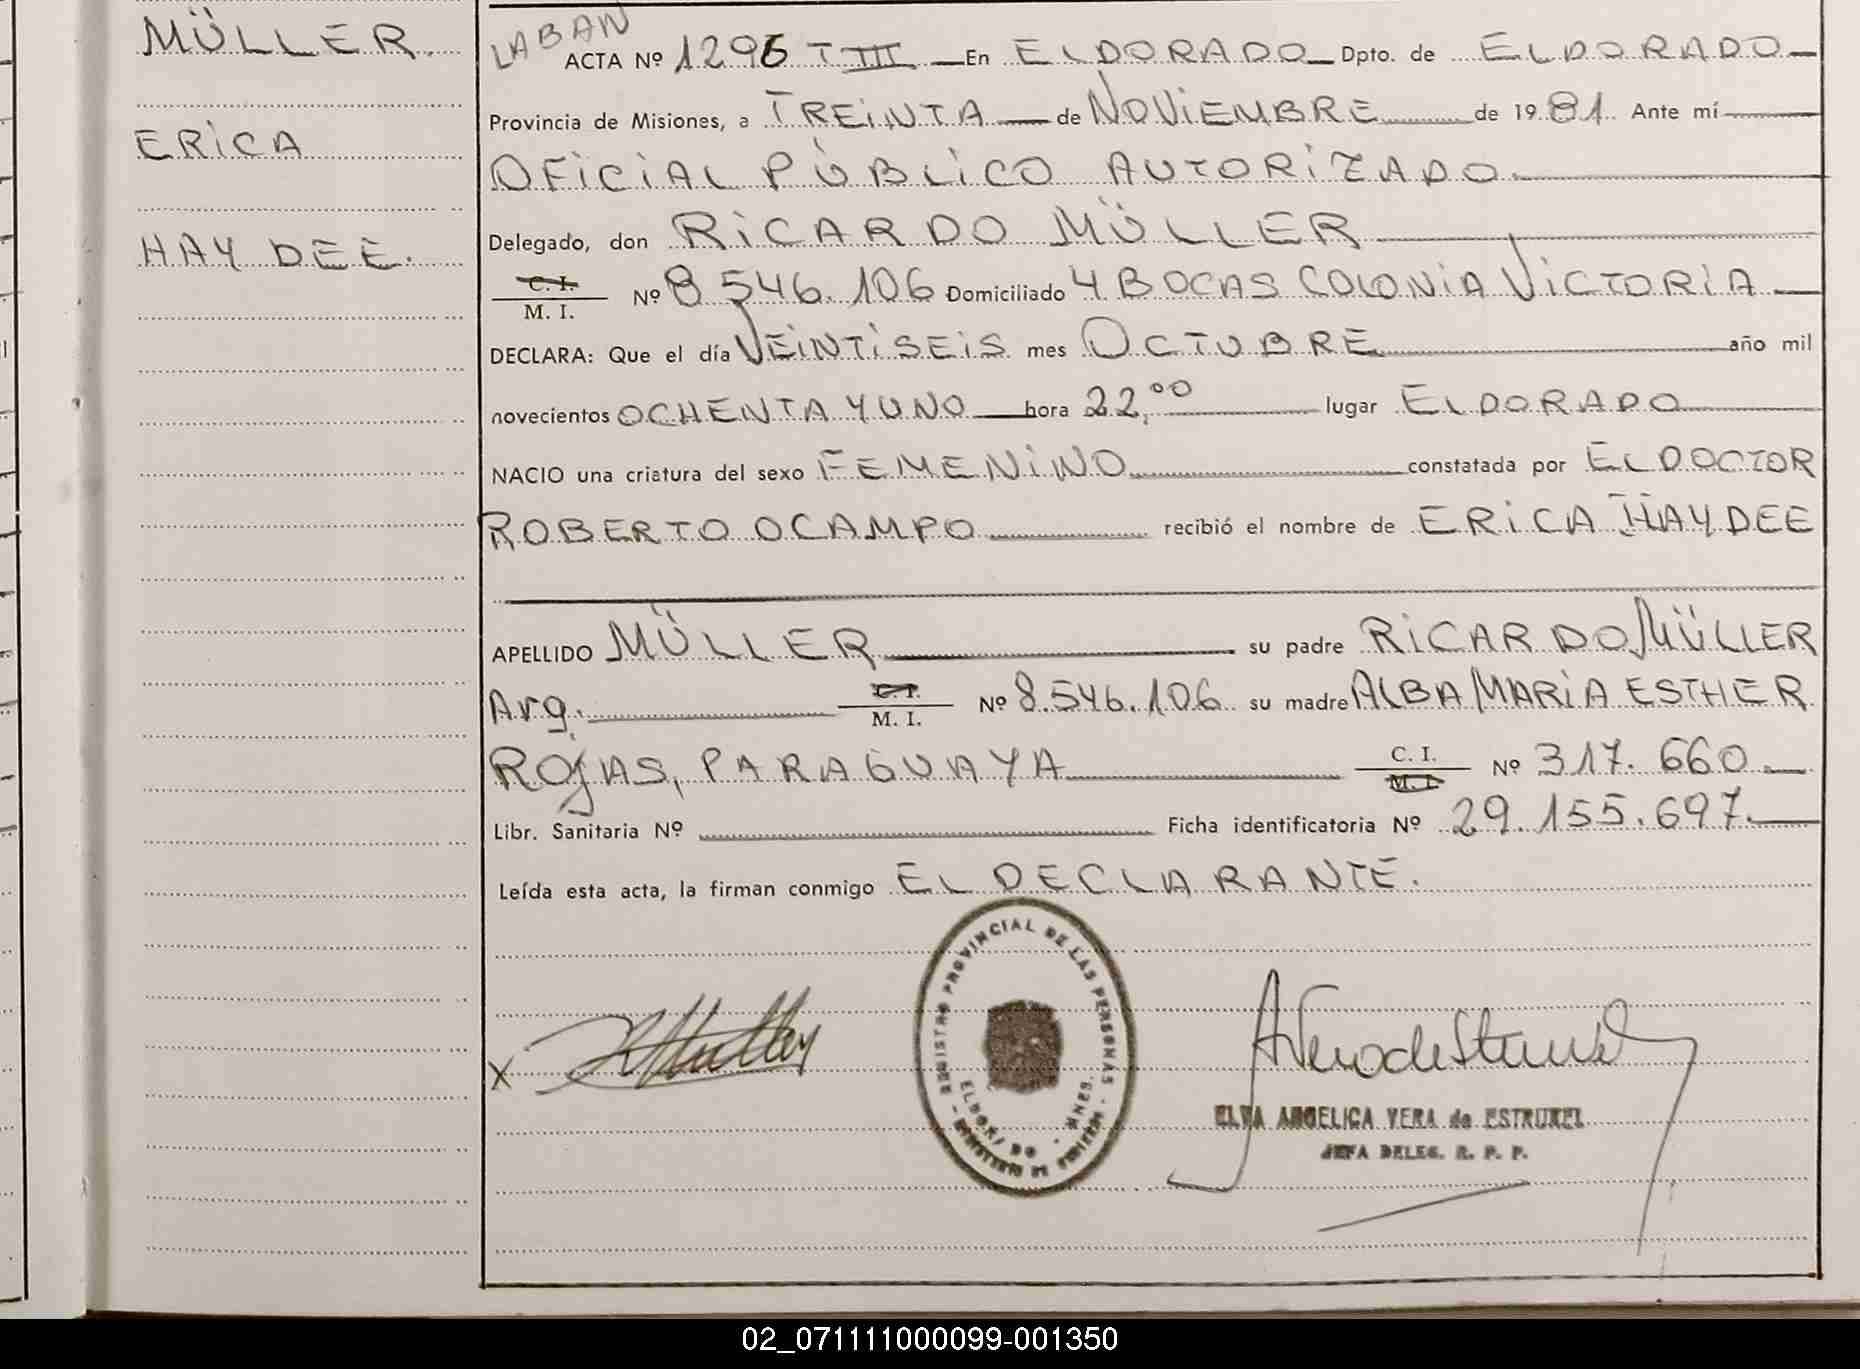 MÜLLER.
ERICA
HAYDEE.
LABAN
ACTA Nº 1296 T III En ELDORADO Dpto. de ELDORADO
Provincia de Misiones, a TREINTA de NOVIEMBRE de 1981. Ante mí
OFICIAL PÚBLICO AUTORIZADO.
Delegado, don RICARDO MÜLLER
C. I.
M. I. Nº 8.546.106 Domiciliado 4 BOCAS COLONIA VICTORIA
DECLARA: Que el día VEINTISEIS mes OCTUBRE año mil
novecientos OCHENTA Y UNO hora 22,00 lugar ELDORADO
NACIO una criatura del sexo FEMENINO constatada por EL DOCTOR
ROBERTO OCAMPO recibió el nombre de ERICA HAYDEE
APELLIDO MÜLLER su padre RICARDO MÜLLER
Arg. C. I.
M. I. Nº 8.546.106 su madre ALBA MARIA ESTHER
ROJAS, PARAGUAYA C. I.
M. I. Nº 317.660
Libr. Sanitaria Nº Ficha identificatoria Nº 29.155.697.
Leída esta acta, la firman conmigo EL DECLARANTE.
REGISTRO PROVINCIAL DE LAS PERSONAS
ELDORADO
X
ELVA ANGELICA VERA de ESTRUXEL
JEFA DELEG. R. P. P.
02_071111000099-001350